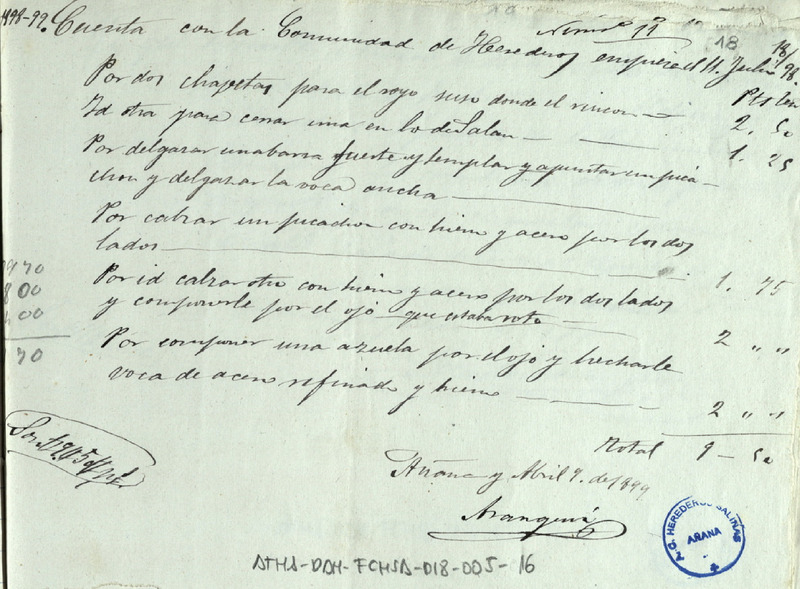 1898-99. Cuenta con la Comunidad de Herederos empiece el 11. Julio 98.
Núm.º 11
18
18/
Pts Cen
Por dos chapetas para el royo suso donde el rincon — 2. 50
Id otra para cerrar una en lo de Salan — 1. 25
Por delgazar una barra fuerte y templar y apuntar un pica-
chon y delgazar la voca ancha
Por calzar un picachon con hierro y acero por los dos
lados — 1. 75
Por id calzar otro con hierro y acero por los dos lados
y componerle por el ojo que estaba roto — 2 " "
Por componer una azuela por el ojo y hecharle
voca de acero refinado y hierro — 2 " "
Total 9 - 50
Añana y Abril 9. de 1899
Aranguiz
70
00
00
70
Z.G. HEREDEROS SALINAS
AÑANA
ATHA-DAH-FCHSA-018-005-16